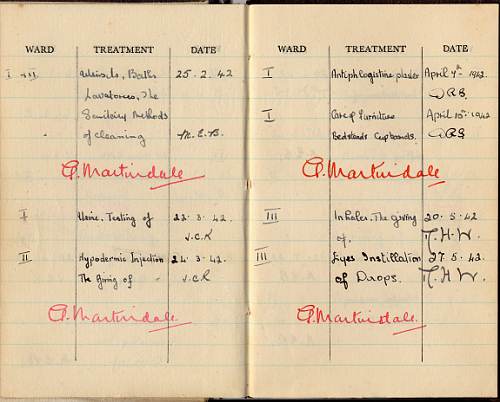 WARD TREATMENT DATE
I & III Utensils, Baths 25.2.42
Lavatories, The
Sanitary Methods
of cleaning M.E.B.
A. Martindale
I Urine. Testing of 22.3.42.
J.C.K
II Hypodermic Injection 24.3.42.
The Giving of J.C.K
A. Martindale
WARD TREATMENT DATE
I Antiphlogistine plaster April 7th 1942.
I Care of Furniture April 10th 1942
Bedsteads Cupboards.
A. Martindale
III Inhales. The giving 20.5.42
of. T.H.W.
III Eyes Instillation 27.5.42.
of Drops. T.H.W
A. Martindale.